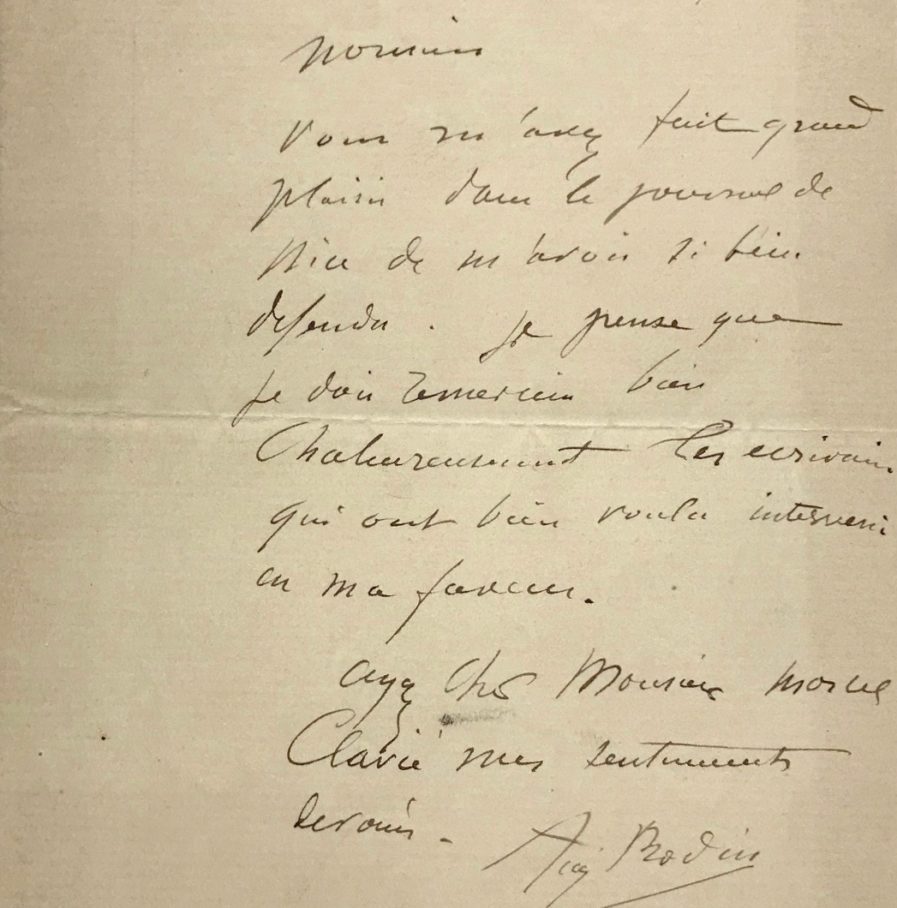 Monsieur
Vous m'avez fait grand
plaisir dans le journal de
Nice de m'avoir si bien
defendu. je pense que
je dois remercier bien
Chaleureusement les ecrivains
qui ont bien voulu intervenir
en ma faveur.
ayez Cher Monsieur Marcel
Clavié mes sentiments
devoués.
Aug Rodin